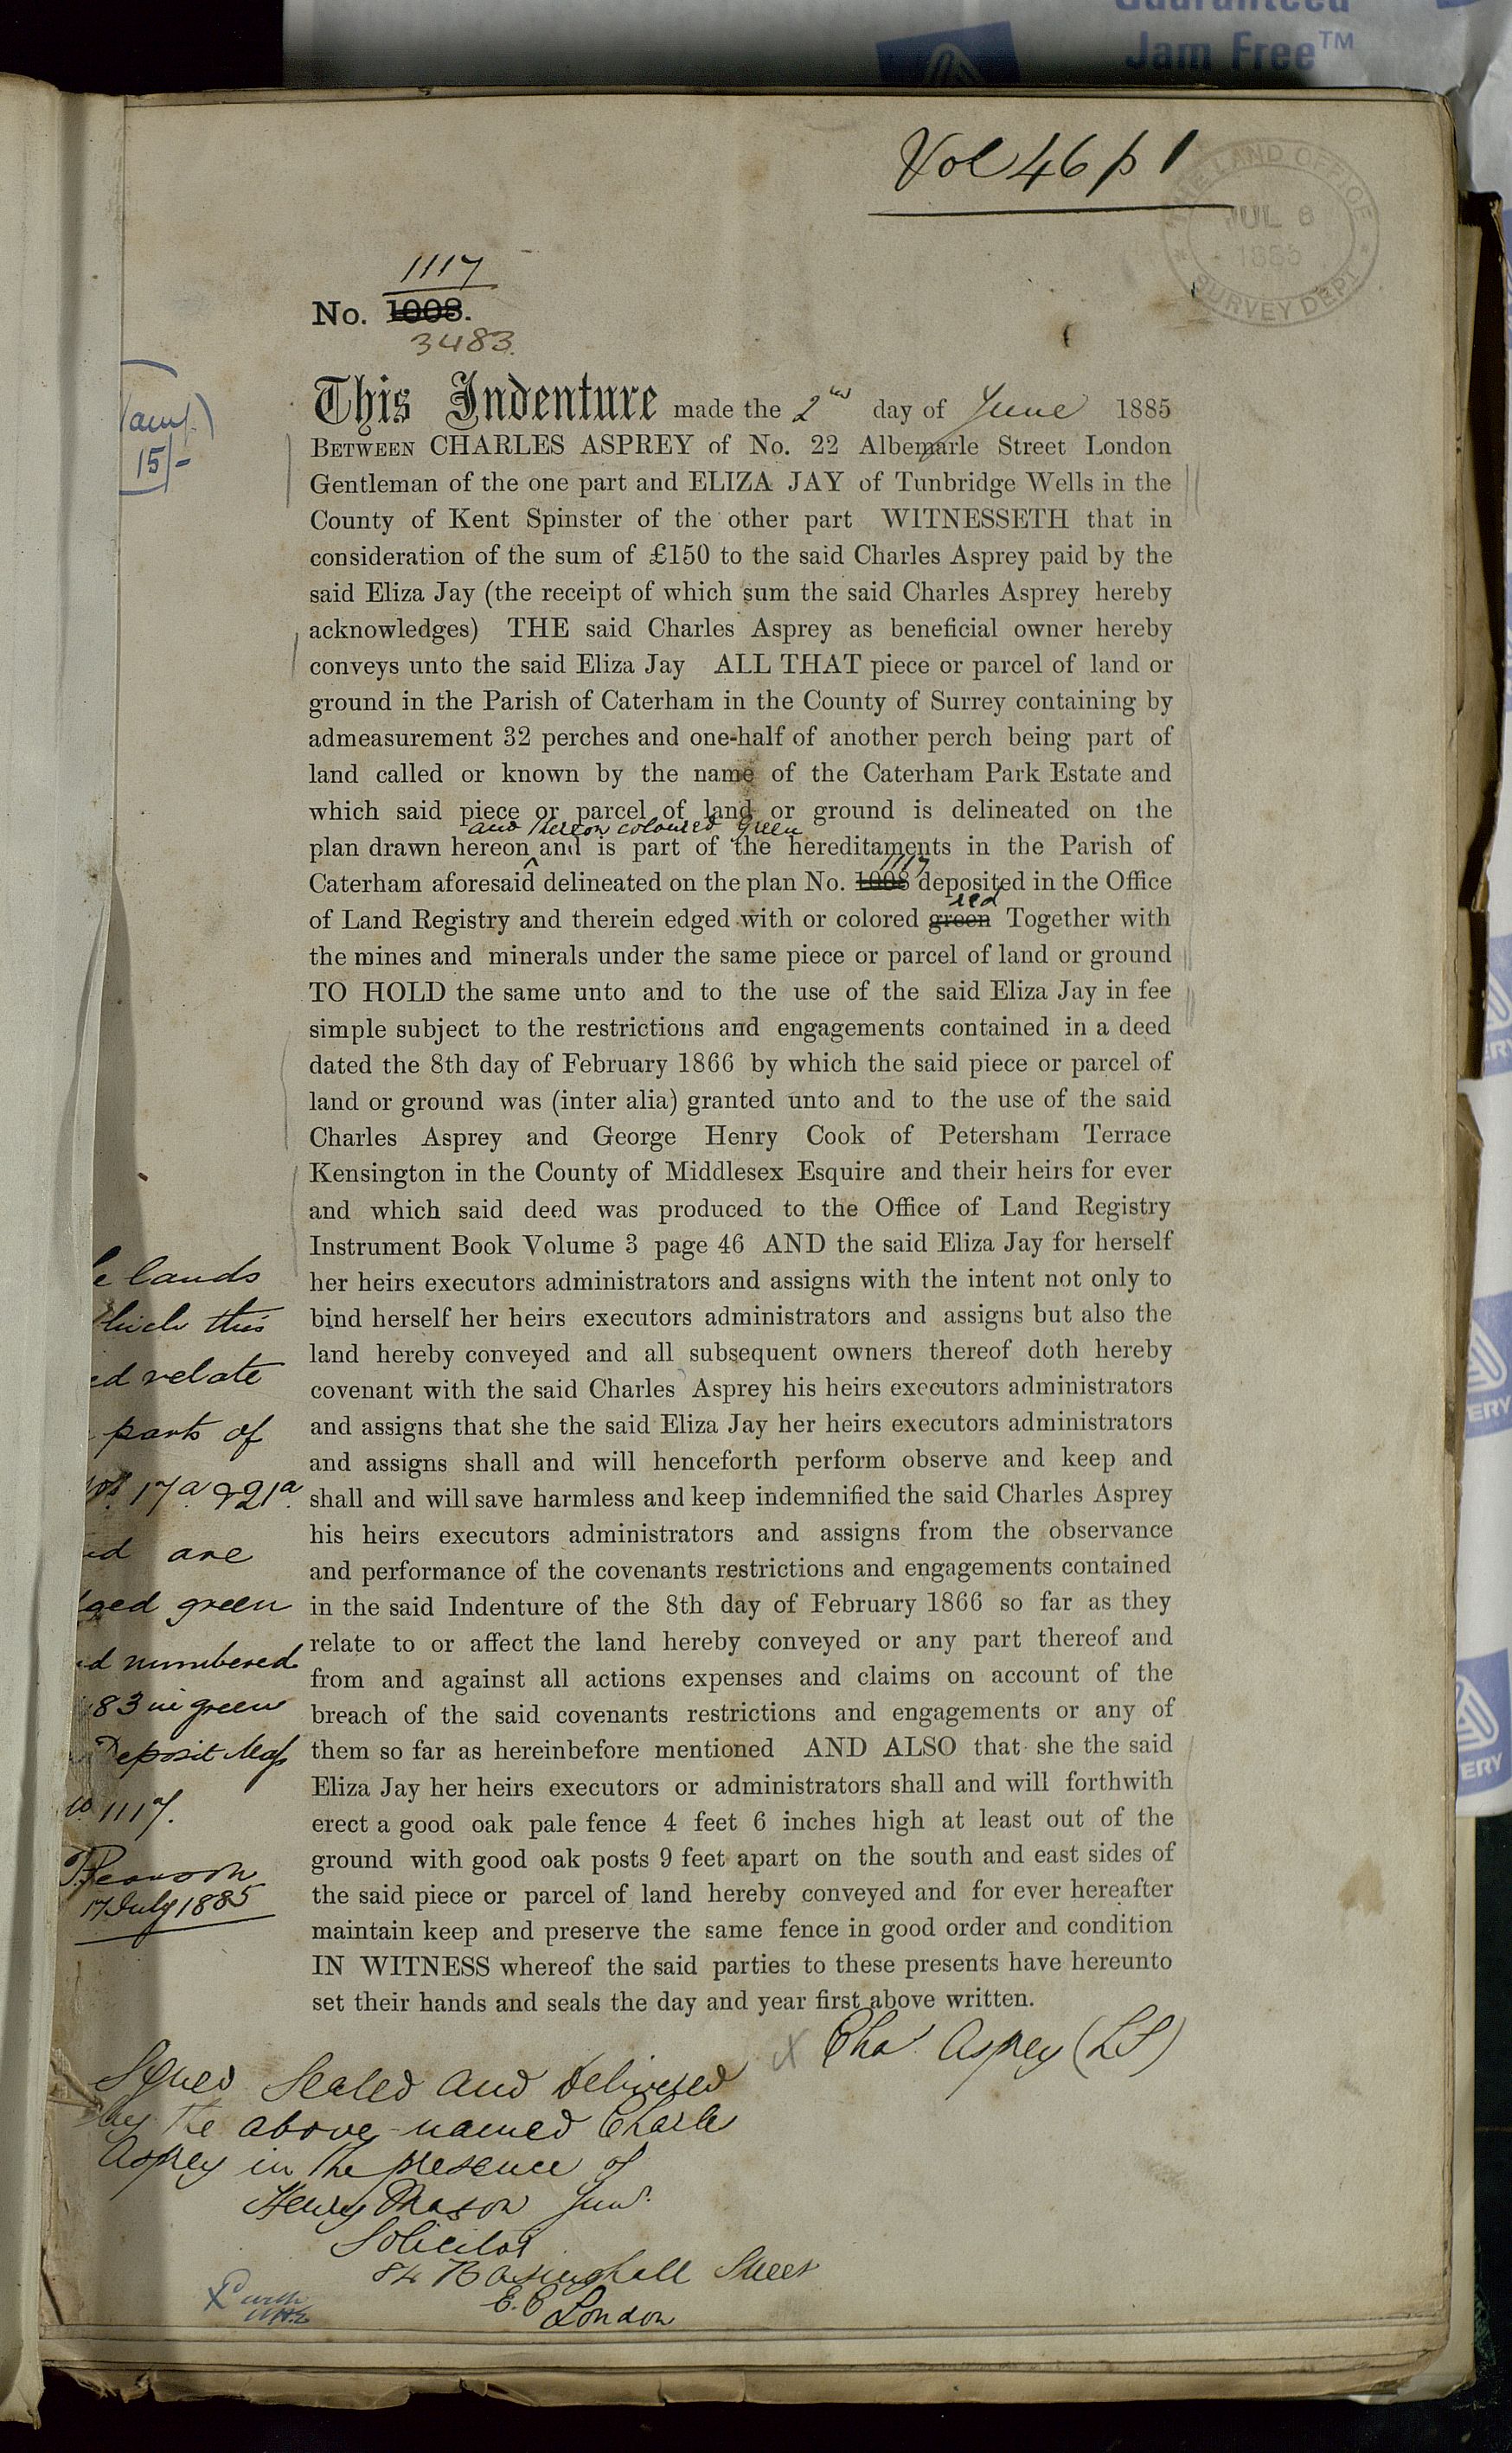 Guaranteed
Jam Free™
Vol 46 p 1
THE LAND OFFICE
JUL 6
1885
SURVEY DEPT
1117
No. 1008.
3483.
15/-
This Indenture made the 2nd day of June 1885
BETWEEN CHARLES ASPREY of No. 22 Albemarle Street London
Gentleman of the one part and ELIZA JAY of Tunbridge Wells in the
County of Kent Spinster of the other part WITNESSETH that in
consideration of the sum of £150 to the said Charles Asprey paid by the
said Eliza Jay (the receipt of which sum the said Charles Asprey hereby
acknowledges) THE said Charles Asprey as beneficial owner hereby
conveys unto the said Eliza Jay ALL THAT piece or parcel of land or
ground in the Parish of Caterham in the County of Surrey containing by
admeasurement 32 perches and one-half of another perch being part of
land called or known by the name of the Caterham Park Estate and
which said piece or parcel of land or ground is delineated on the
and thereon coloured Green
plan drawn hereon and is part of the hereditaments in the Parish of
1117
Caterham aforesaid delineated on the plan No. 1008 deposited in the Office
red
of Land Registry and therein edged with or colored green Together with
the mines and minerals under the same piece or parcel of land or ground
TO HOLD the same unto and to the use of the said Eliza Jay in fee
simple subject to the restrictions and engagements contained in a deed
dated the 8th day of February 1866 by which the said piece or parcel of
land or ground was (inter alia) granted unto and to the use of the said
Charles Asprey and George Henry Cook of Petersham Terrace
Kensington in the County of Middlesex Esquire and their heirs for ever
and which said deed was produced to the Office of Land Registry
Instrument Book Volume 3 page 46 AND the said Eliza Jay for herself
her heirs executors administrators and assigns with the intent not only to
bind herself her heirs executors administrators and assigns but also the
land hereby conveyed and all subsequent owners thereof doth hereby
covenant with the said Charles Asprey his heirs executors administrators
and assigns that she the said Eliza Jay her heirs executors administrators
and assigns shall and will henceforth perform observe and keep and
shall and will save harmless and keep indemnified the said Charles Asprey
his heirs executors administrators and assigns from the observance
and performance of the covenants restrictions and engagements contained
in the said Indenture of the 8th day of February 1866 so far as they
relate to or affect the land hereby conveyed or any part thereof and
from and against all actions expenses and claims on account of the
breach of the said covenants restrictions and engagements or any of
them so far as hereinbefore mentioned AND ALSO that she the said
Eliza Jay her heirs executors or administrators shall and will forthwith
erect a good oak pale fence 4 feet 6 inches high at least out of the
ground with good oak posts 9 feet apart on the south and east sides of
the said piece or parcel of land hereby conveyed and for ever hereafter
maintain keep and preserve the same fence in good order and condition
IN WITNESS whereof the said parties to these presents have hereunto
set their hands and seals the day and year first above written.
e lands
hich this
ed relate
parts of
17a & 21a
are
ged green
d numbered
83 in green
Deposit Map
1117.
Pearson
17 July 1885
Chas. Asprey (LS)
Signed Sealed and Delivered
by the above-named Charles
Asprey in the presence of
Henry Mason Junr.
Solicitor
84 Basinghall Street
E.C
London